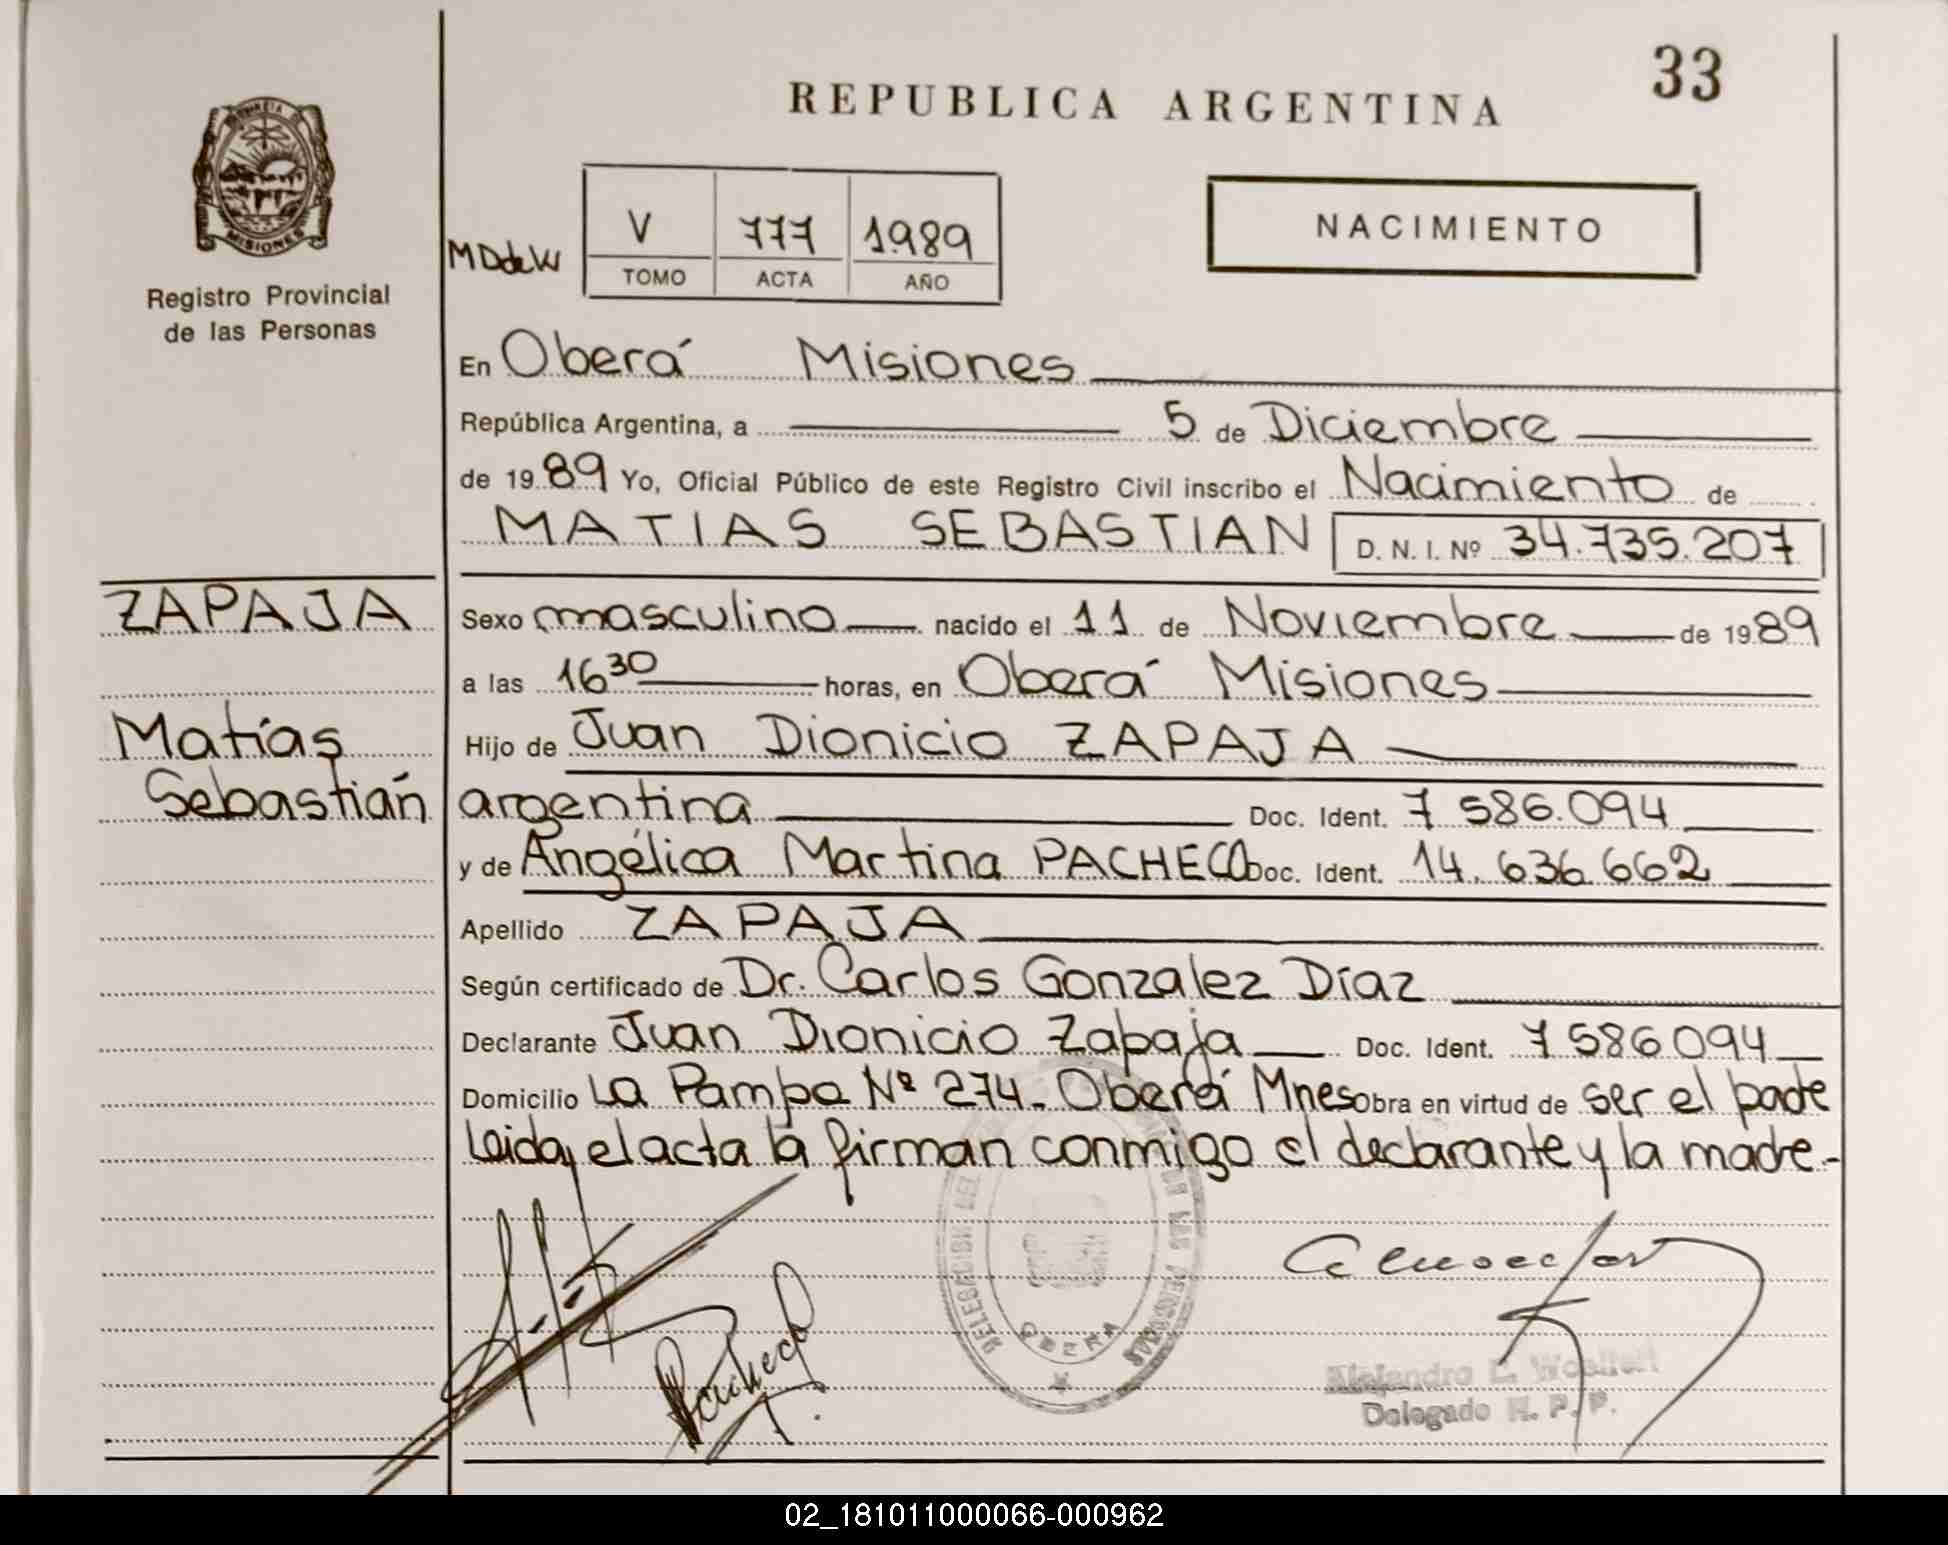 33
REPUBLICA ARGENTINA
PROVINCIA DE
MISIONES
Registro Provincial
de las Personas
MDdeW
V 777 1989
TOMO ACTA AÑO
NACIMIENTO
En Oberá Misiones
República Argentina, a 5 de Diciembre
de 1989 Yo, Oficial Público de este Registro Civil inscribo el Nacimiento de
MATIAS SEBASTIAN D. N. I. Nº 34.735.207
ZAPAJA
Matías
Sebastián
Sexo masculino nacido el 11 de Noviembre de 1989
a las 16 30 horas, en Oberá Misiones
Hijo de Juan Dionicio ZAPAJA
argentina Doc. Ident. 7 586.094
y de Angélica Martina PACHECO Doc. Ident. 14.636.662
Apellido ZAPAJA
Según certificado de Dr. Carlos Gonzalez Díaz
Declarante Juan Dionicio Zapaja Doc. Ident. 7 586094
Domicilio La Pampa Nº 274. Oberá Mnes Obra en virtud de ser el padre
Leida el acta la firman conmigo el declarante y la madre.-
DELEGACION DEL DE LAS PERSONAS
OBERA
Pacheco
Alejandro E.
Delegado R. P. P.
02_181011000066-000962